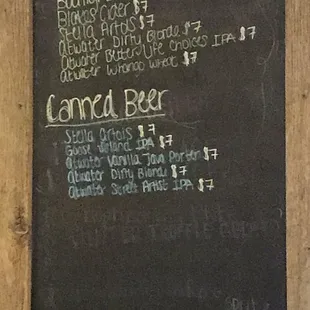 Blakes Cider $7
Stella Artois $7
Atwater Dirty Blonde $7
Atwater Better Life Choices IPA $7
Atwater Whango Wheat $7
Canned Beer
Stella Artois $7
Goose Island IPA $7
Atwater Vanilla Java Porter $7
Atwater Dirty Blonde $7
Atwater Street Artist IPA $7